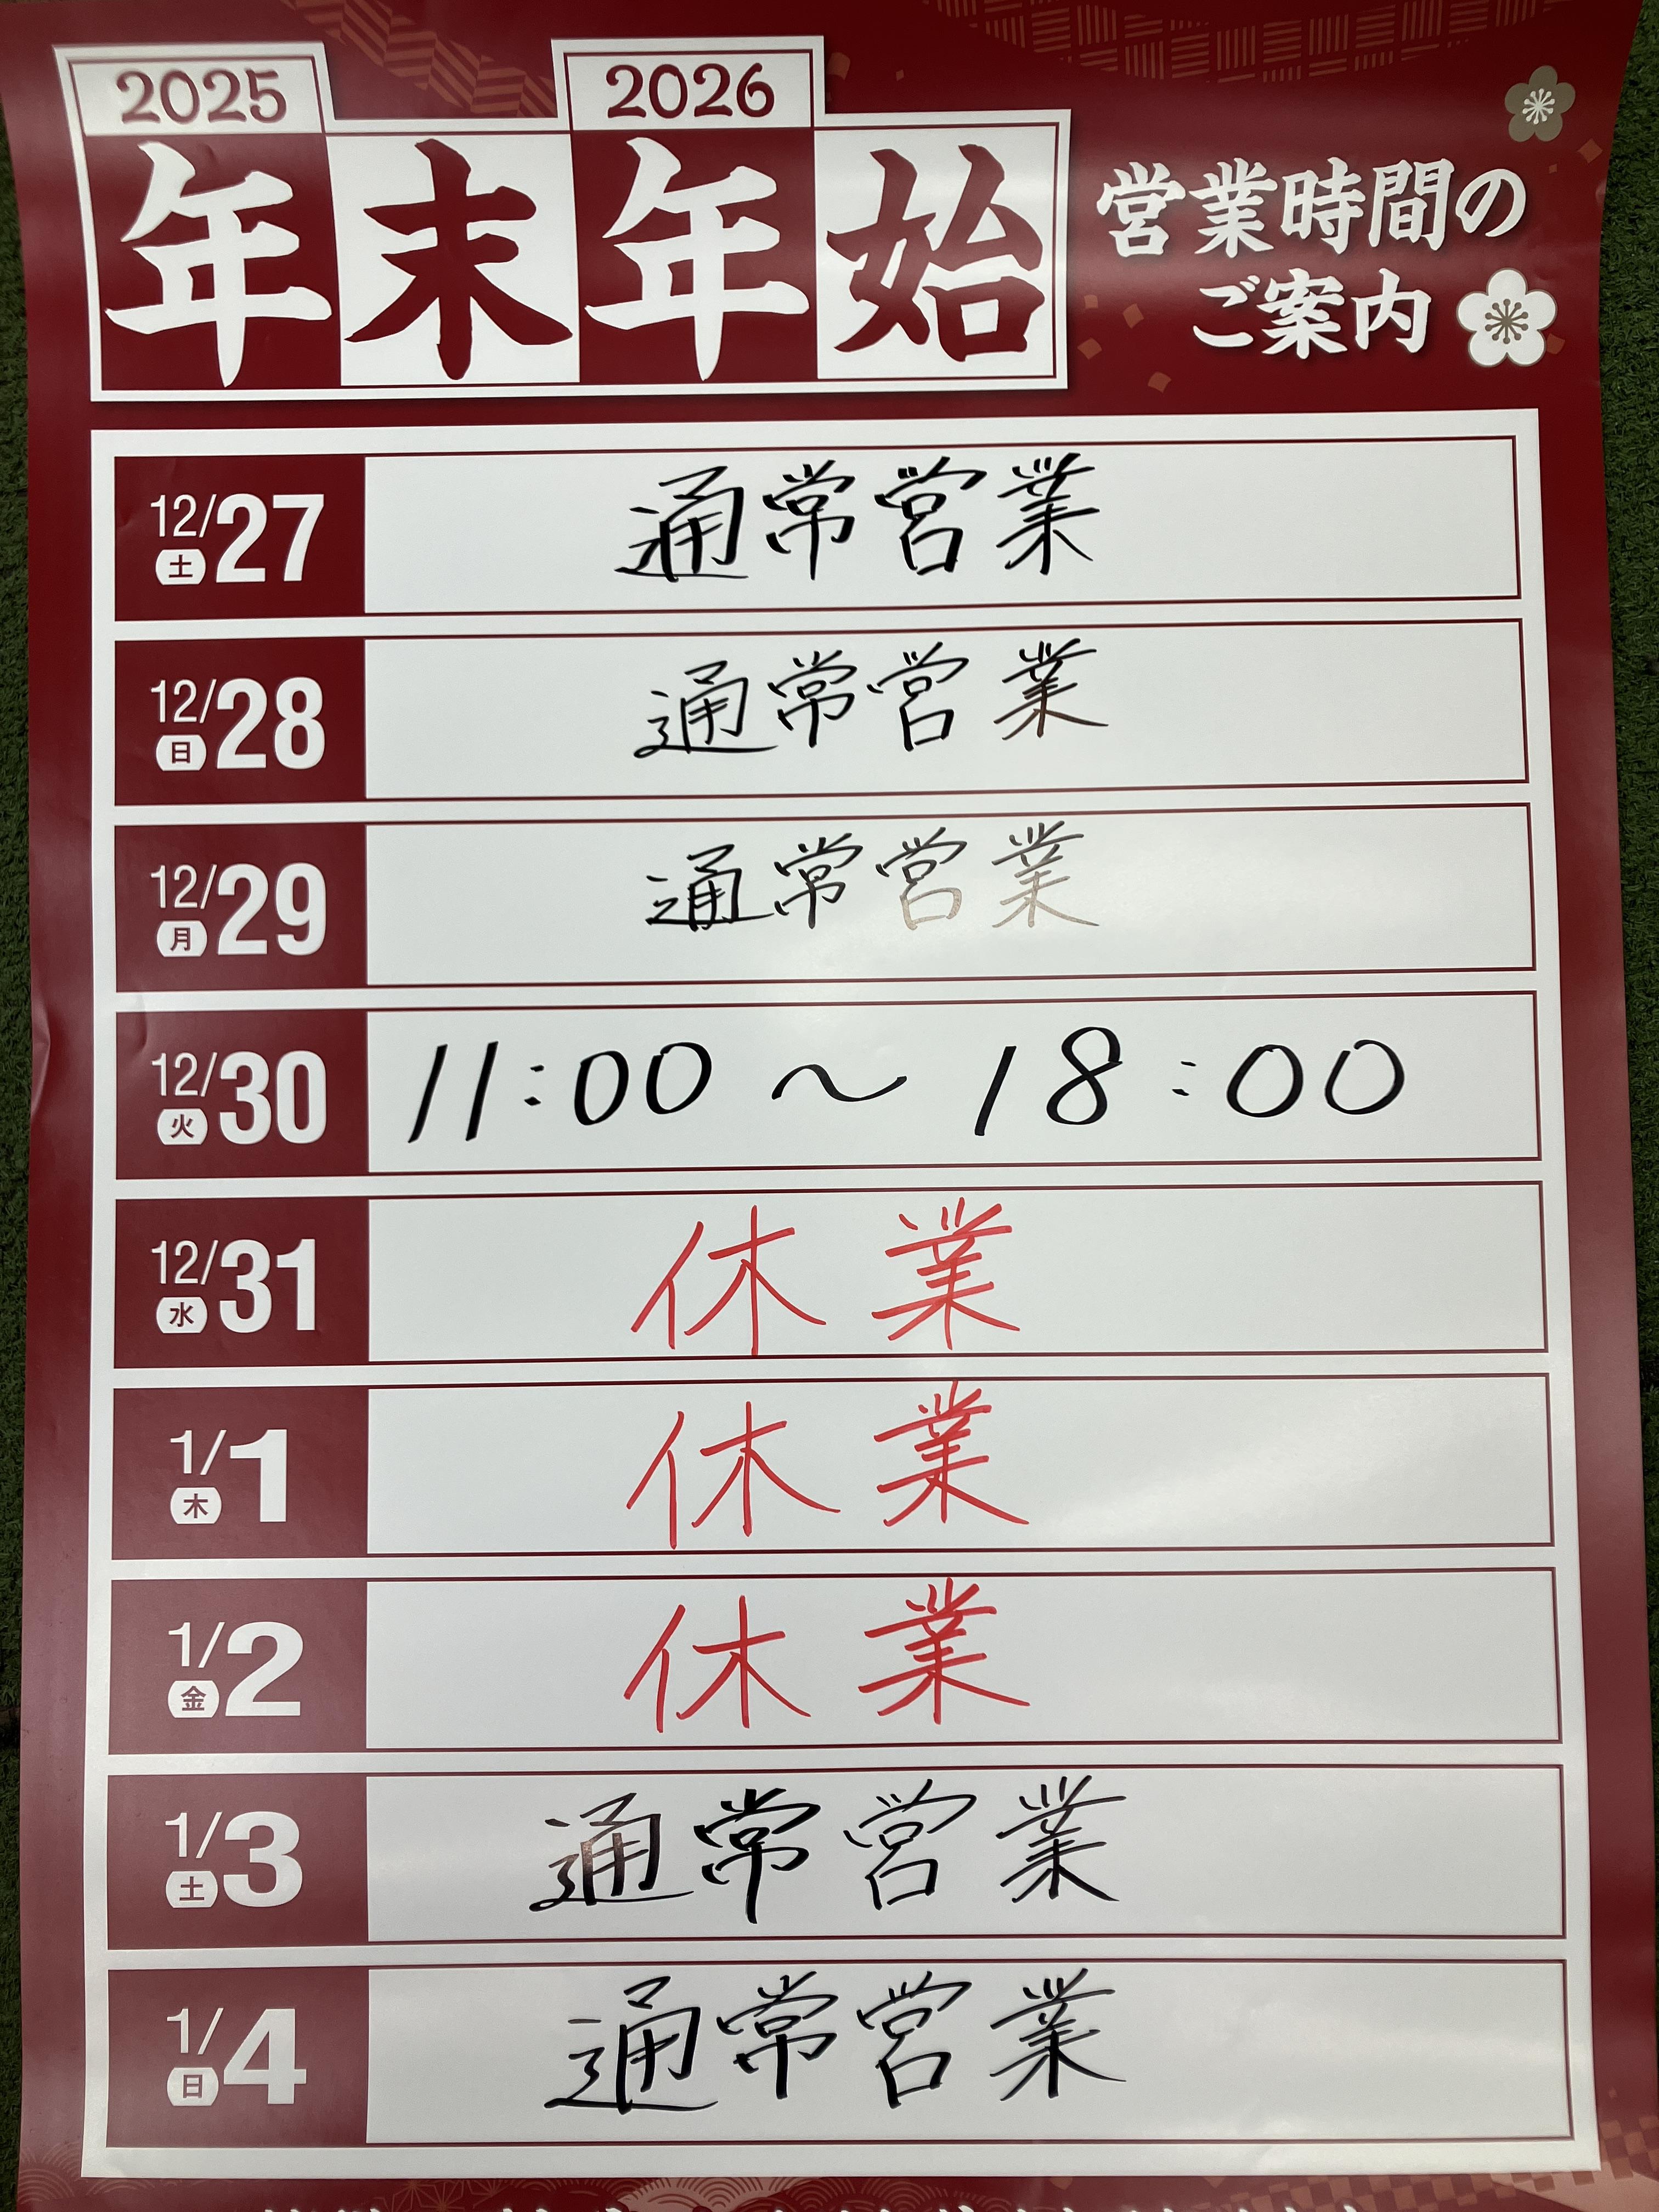 2025 2026
年末年始
営業時間の
ご案内
12/27 土 通常営業
12/28 日 通常営業
12/29 月 通常営業
12/30 火 11:00 〜 18:00
12/31 水 休業
1/1 木 休業
1/2 金 休業
1/3 土 通常営業
1/4 日 通常営業